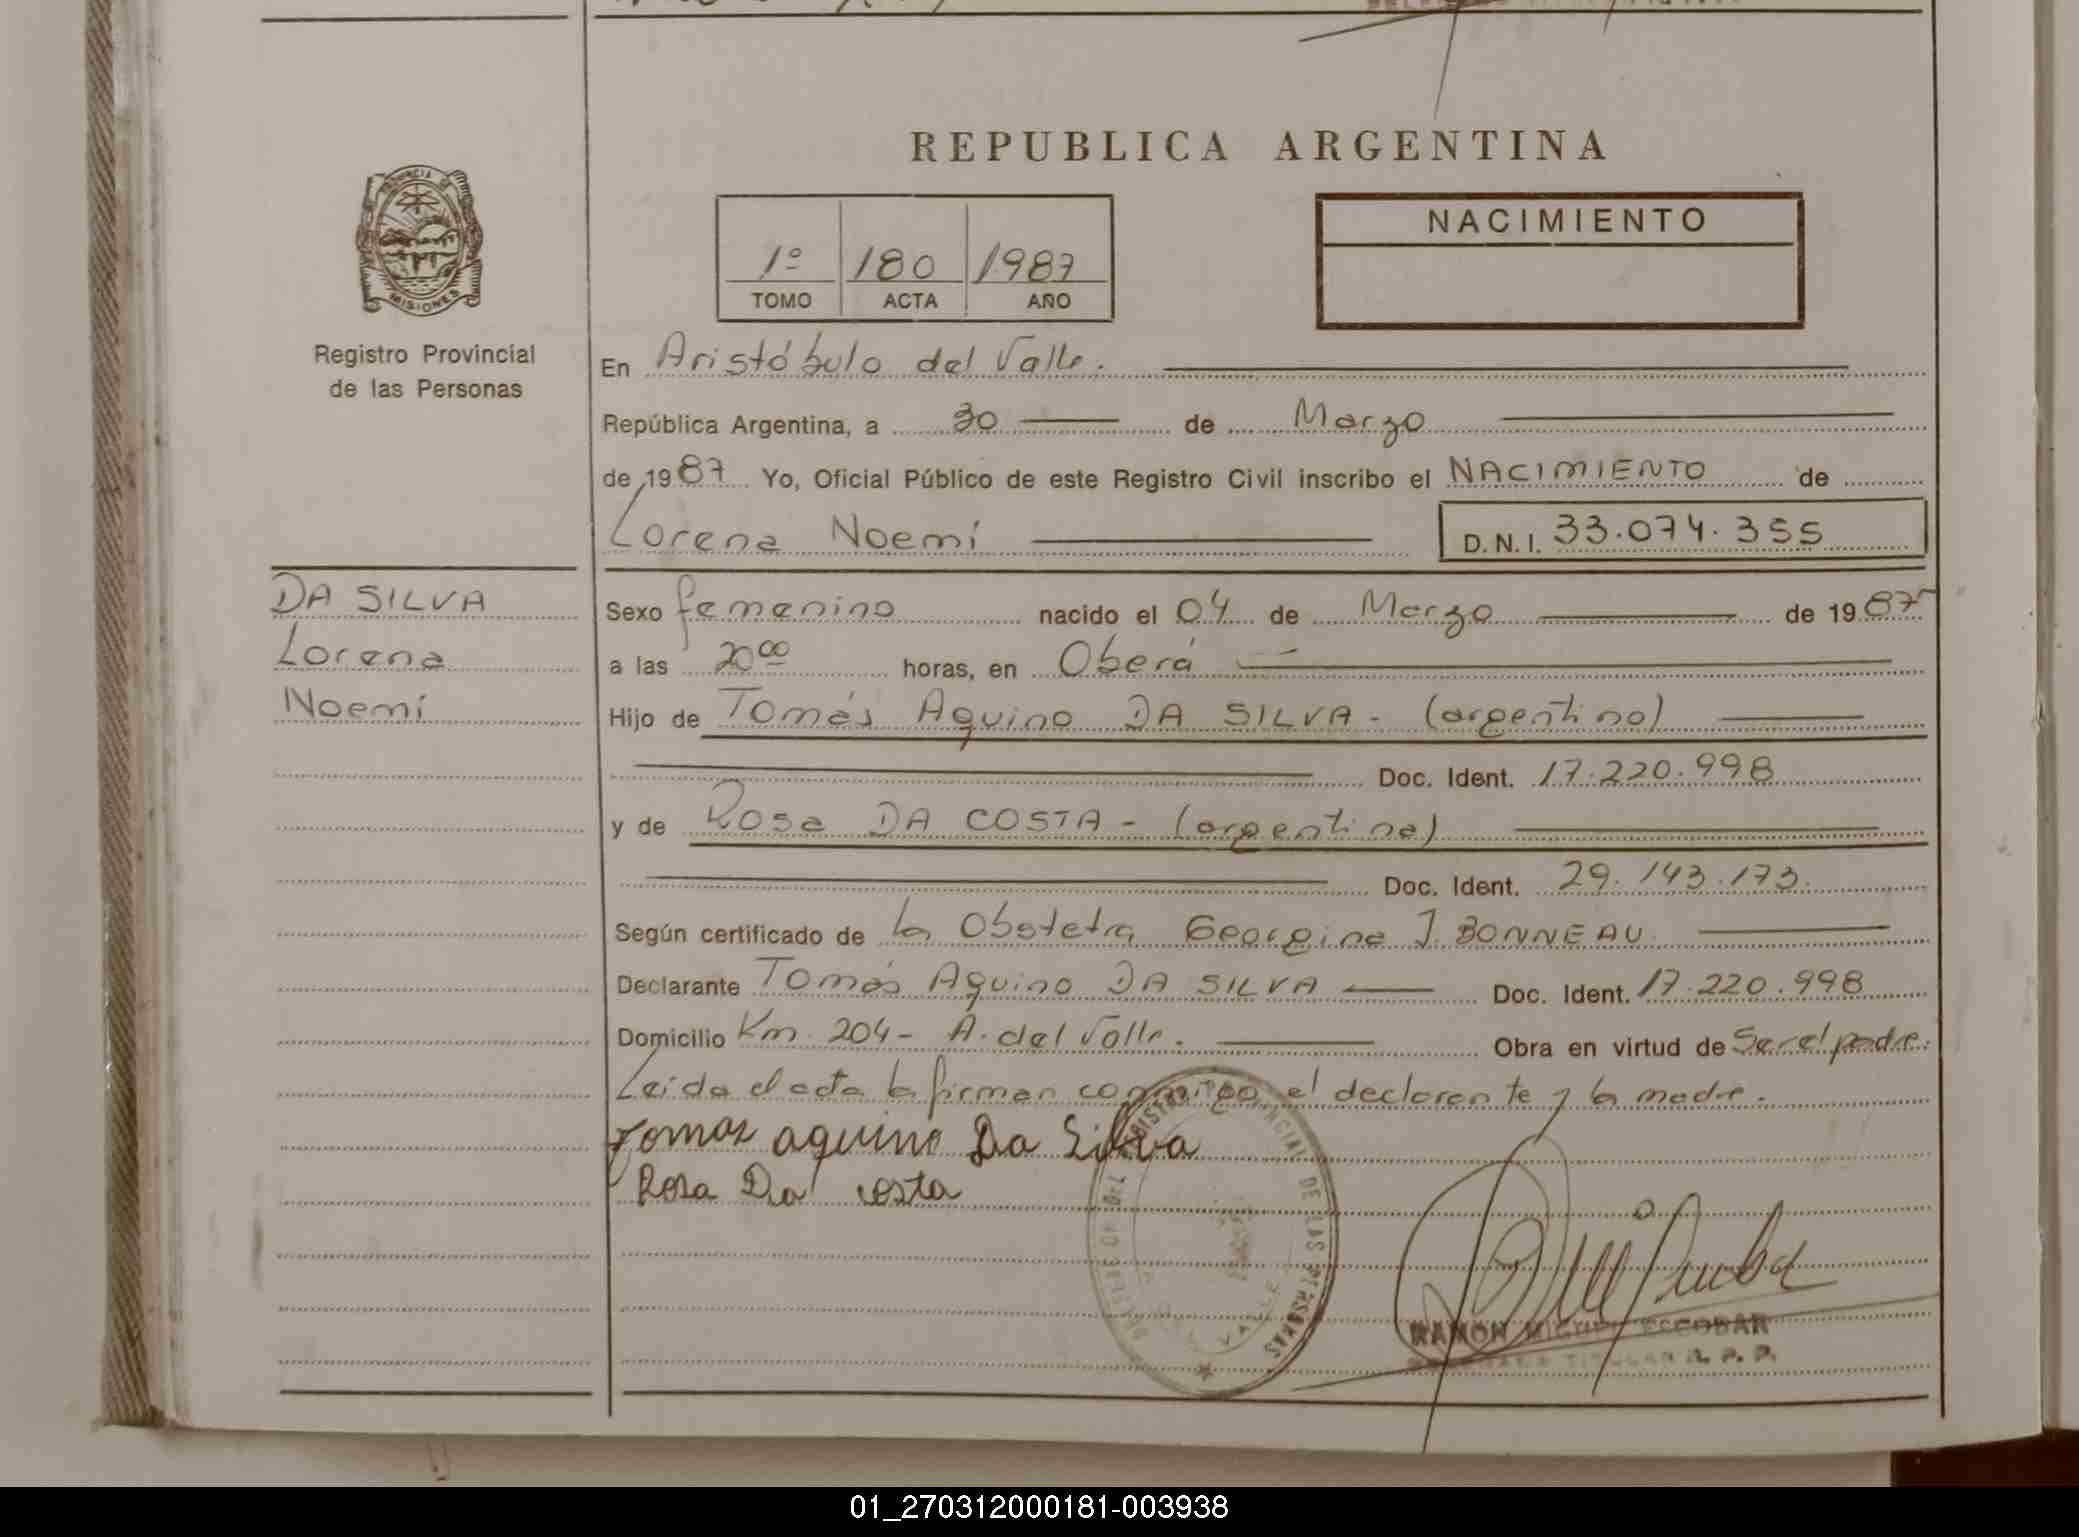 REPUBLICA ARGENTINA
PROVINCIA DE
MISIONES
Registro Provincial
de las Personas
1º 180 1987
TOMO ACTA AÑO
NACIMIENTO
En Aristóbulo del Valle.
República Argentina, a 30 de Marzo
de 1987 Yo, Oficial Público de este Registro Civil inscribo el NACIMIENTO de
Lorena Noemí D.N.I. 33.074.355
DA SILVA
Lorena
Noemí
Sexo femenino nacido el 04 de Marzo de 1987
a las 20 00 horas, en Oberá
Hijo de Tomás Aquino DA SILVA - (argentino)
Doc. Ident. 17.220.998
y de Rosa DA COSTA - (argentina)
Doc. Ident. 29.143.173.
Según certificado de la Obstetra Georgina J. BONNEAU.
Declarante Tomás Aquino DA SILVA Doc. Ident. 17.220.998
Domicilio Km. 204 - A. del Valle. Obra en virtud de Ser el padre.
Leida el acta la firman conmigo el declarante y la madre.
Tomas aquino Da Silva
Rosa Da costa
REGISTRO PROVINCIAL DE LAS PERSONAS
VALLE
RAMON MIGUEL ESCOBAR
TITULAR R. P. P.
01_270312000181-003938